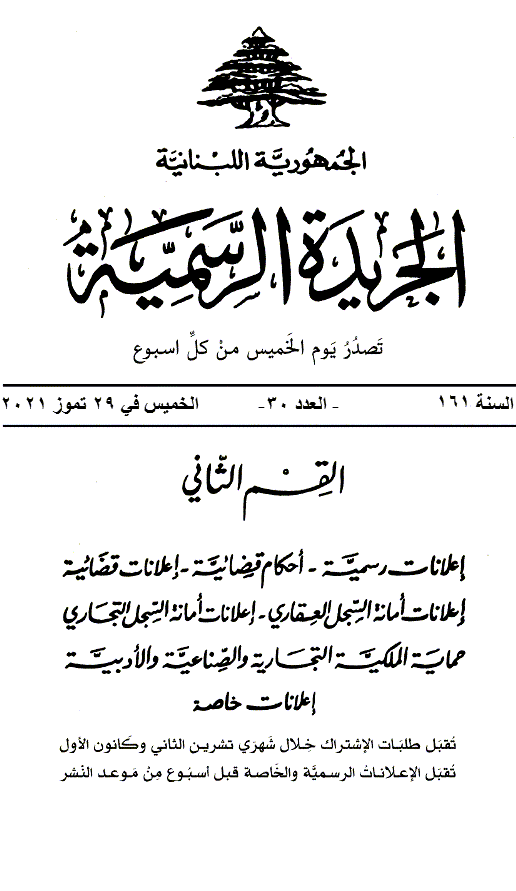 الجُمهُوريَّة اللبْنانيَّة
الجَريدَة الرسَّمِيَّة
تَصدُرُ يَوم الخَميس منْ كلِّ اسبوع
السنة ١٦١ - العدد ٣٠- الخميس في ٢٩ تموز ٢٠٢١
القِسْم الثّاني
إعلانات رسميَّة - أحكام قضائيَّة - إعلانات قضائية
إعلانات أمانة السِّجل العِقاري - إعلانات أمانة السِّجل التجاري
حماية الملكيَّة التجارية والصِّناعيَّة والأدبيَّة
إعلانات خاصة
تُقبَل طلبَات الإشتراك خِلال شَهرَي تشرين الثاني وكَانون الأول
تُقبَل الإعلاناتُ الرسميَّة والخَاصة قبل أسبُوع مِنْ مَوعد النَشر